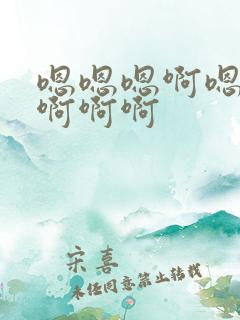 嗯嗯嗯啊嗯
啊啊啊
宋喜
未经同意禁止转载